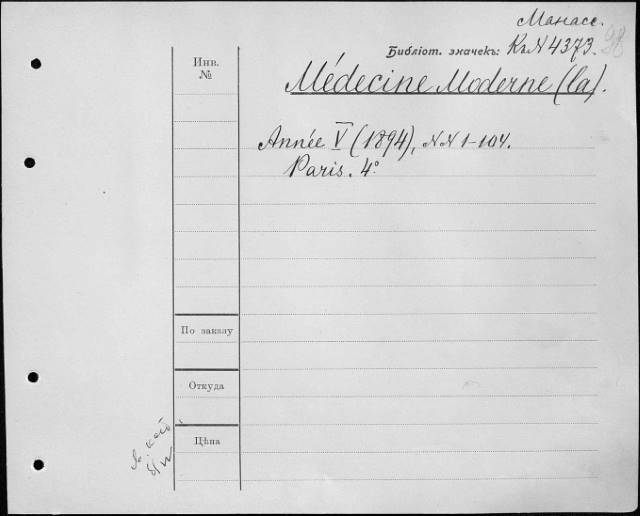 Манасс.
Библіот. значекъ: КъN 4373.
98
Инв.
№
Médecine Moderne (la).
Année V (1894), NN 1-104.
Paris. 4°
По заказу
Откуда
Цѣна